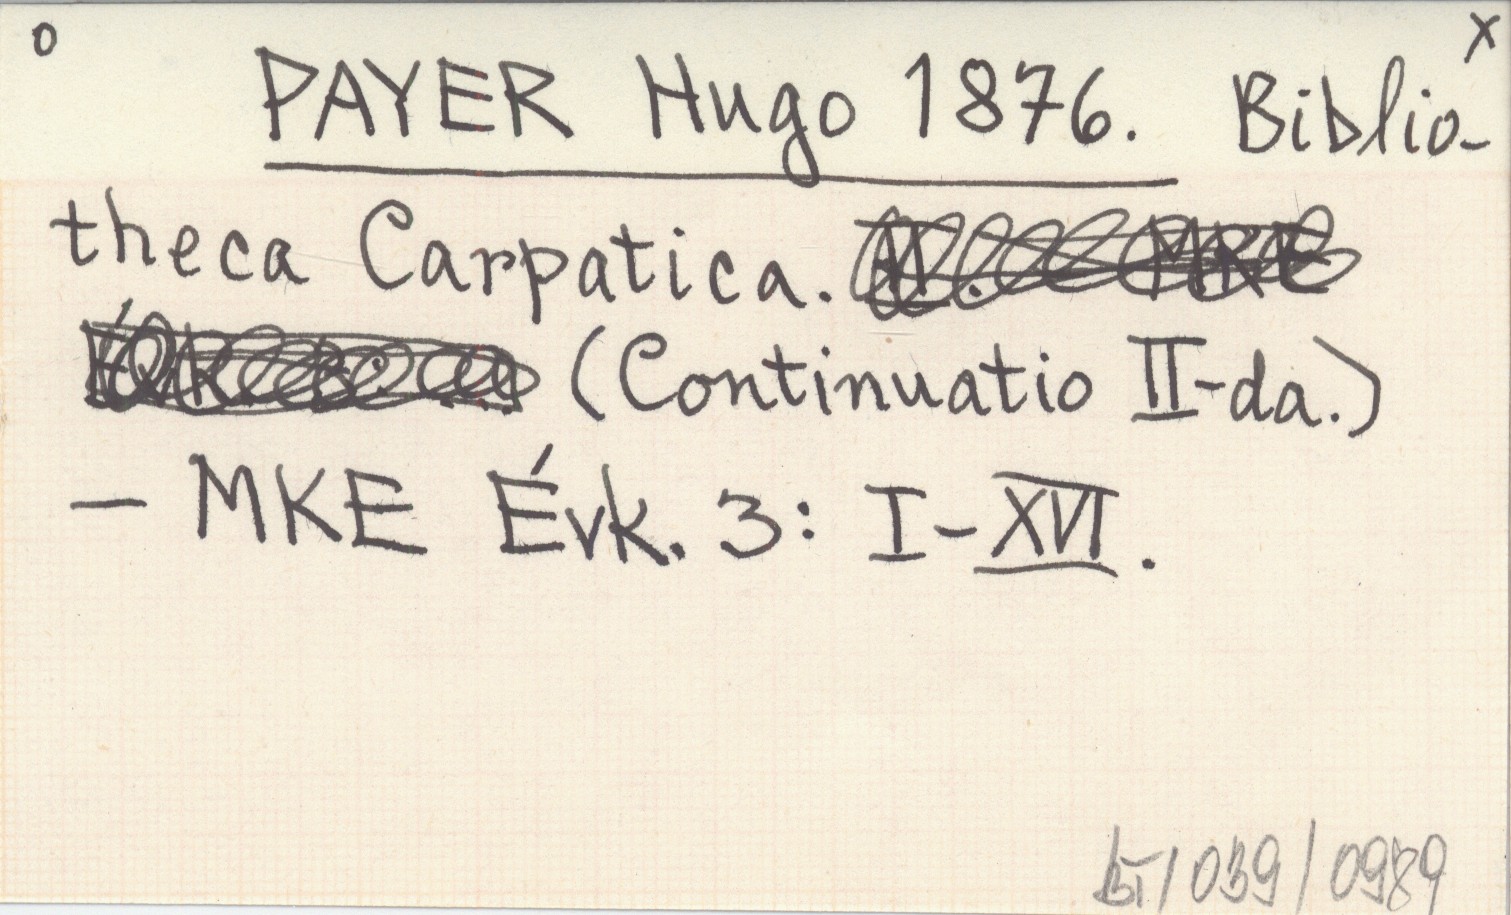 o x
PAYER Hugo 1876. Biblio-
theca Carpatica.
(Continuatio II-da.)
— MKE Évk. 3: I-XVI.
BT/039/0989